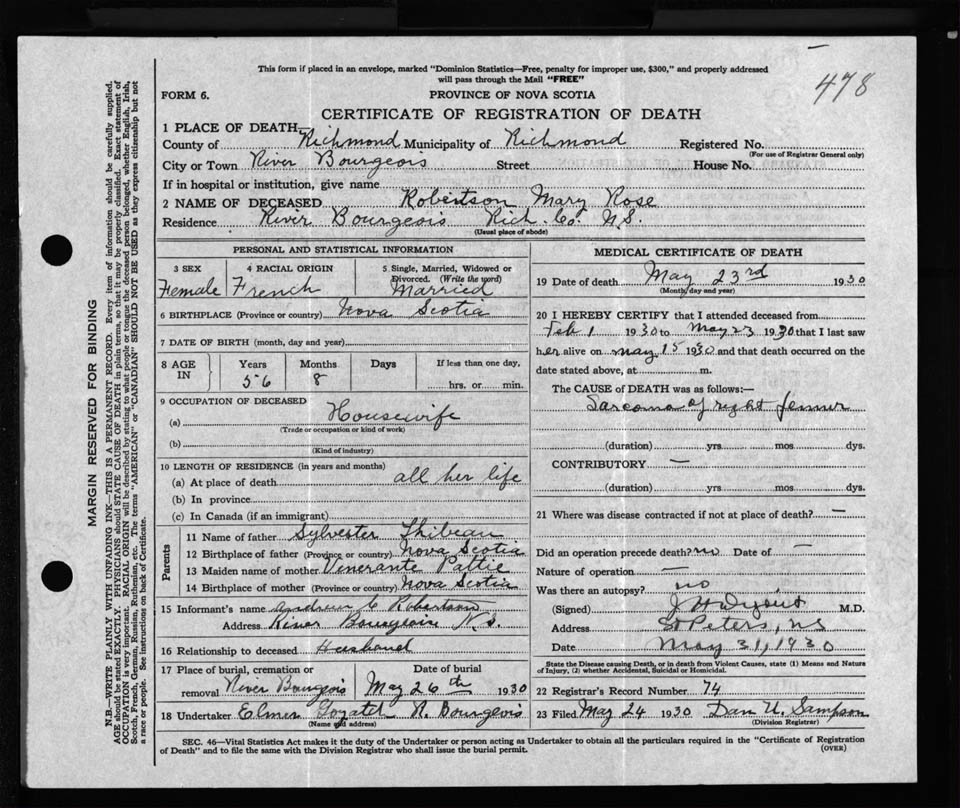 478
This form if placed in an envelope, marked "Dominion Statistics—Free, penalty for improper use, $300," and properly addressed
will pass through the Mail "FREE"
FORM 6.
PROVINCE OF NOVA SCOTIA
CERTIFICATE OF REGISTRATION OF DEATH
1 PLACE OF DEATH—
County of Richmond Municipality of Richmond Registered No.
(For use of Registrar General only)
City or Town River Bourgeois Street House No.
If in hospital or institution, give name
2 NAME OF DECEASED Robertson Mary Rose
Residence River Bourgeois Rich. Co. N.S.
(Usual place of abode)
PERSONAL AND STATISTICAL INFORMATION
3 SEX Female
4 RACIAL ORIGIN French
5 Single, Married, Widowed or
Divorced. (Write the word)
Married
6 BIRTHPLACE (Province or country) Nova Scotia
7 DATE OF BIRTH (month, day and year)
8 AGE IN Years 56 Months 8 Days If less than one day,
hrs. or min.
9 OCCUPATION OF DECEASED
(a) Housewife
(Trade or occupation or kind of work)
(b)
(Kind of industry)
10 LENGTH OF RESIDENCE (in years and months)
(a) At place of death all her life
(b) In province
(c) In Canada (if an immigrant)
Parents
11 Name of father Sylvester Thibeau
12 Birthplace of father (Province or country) Nova Scotia
13 Maiden name of mother Venerante Pattie
14 Birthplace of mother (Province or country) Nova Scotia
15 Informant's name Andrew C Robertson
Address River Bourgeoise N.S.
16 Relationship to deceased Husband
17 Place of burial, cremation or
removal River Bourgeois
Date of burial
May 26th 1930
18 Undertaker Elmer R. Bourgeois
(Name and address)
MEDICAL CERTIFICATE OF DEATH
19 Date of death May 23rd 1930
(Month, day and year)
20 I HEREBY CERTIFY that I attended deceased from
Feb 1 1930 to May 23 1930 that I last saw
her alive on May 15 1930 and that death occurred on the
date stated above, at m.
The CAUSE OF DEATH was as follows:—
Sarcoma of right femur
(duration) yrs. mos. dys.
CONTRIBUTORY —
(duration) yrs. mos. dys.
21 Where was disease contracted if not at place of death? —
Did an operation precede death? no Date of —
Nature of operation —
Was there an autopsy? no
(Signed) M.D.
Address St Peters, NS
Date May 31, 1930
State the Disease causing Death, or in death from Violent Causes, state (1) Means and Nature
of Injury, (2) whether Accidental, Suicidal or Homicidal.
22 Registrar's Record Number 74
23 Filed May 24 1930 Dan U. Sampson
(Division Registrar)
SEC. 46—Vital Statistics Act makes it the duty of the Undertaker or person acting as Undertaker to obtain all the particulars required in the "Certificate of Registration
of Death" and to file the same with the Division Registrar who shall issue the burial permit.
(OVER)
MARGIN RESERVED FOR BINDING
N.B.—WRITE PLAINLY WITH UNFADING INK—THIS IS A PERMANENT RECORD. Every item of information should be carefully supplied.
AGE should be stated EXACTLY. PHYSICIANS should STATE CAUSE OF DEATH in plain terms, so that it may be properly classified. Exact statement of
OCCUPATION is very important. RACIAL ORIGIN will be described by stating to what people or tongue the deceased person belonged, whether English, Irish,
Scotch, French, German, Russian, Ruthenian, etc. The terms "AMERICAN" or "CANADIAN" SHOULD NOT BE USED as they express citizenship but not
a race or people. See instructions on back of Certificate.